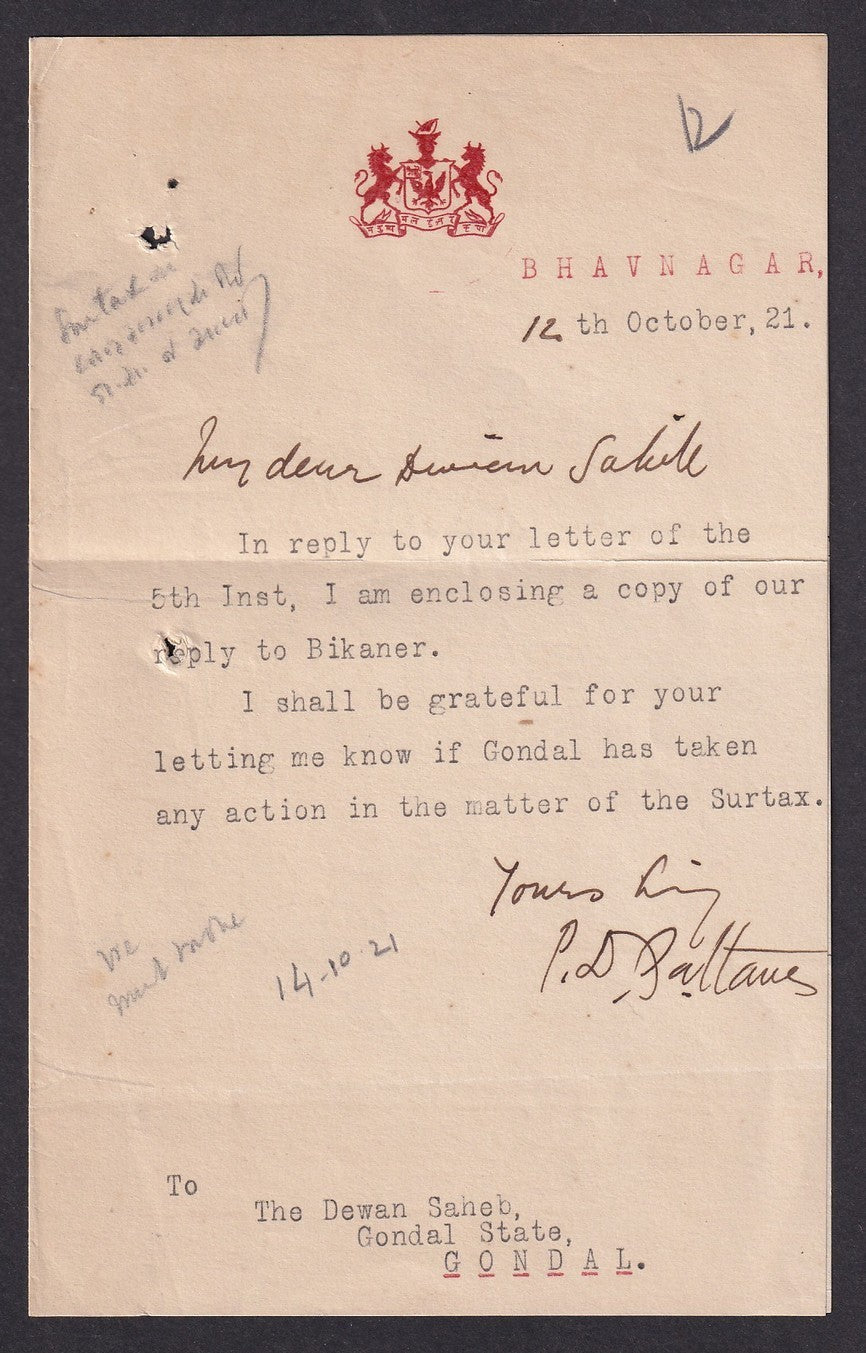 12
BHAVNAGAR,
12 th October, 21.
My dear Dewan Sahib
In reply to your letter of the
5th Inst, I am enclosing a copy of our
reply to Bikaner.
I shall be grateful for your
letting me know if Gondal has taken
any action in the matter of the Surtax.
Yours
P. D. Pattani
14-10-21
To
The Dewan Saheb,
Gondal State,
GONDAL.